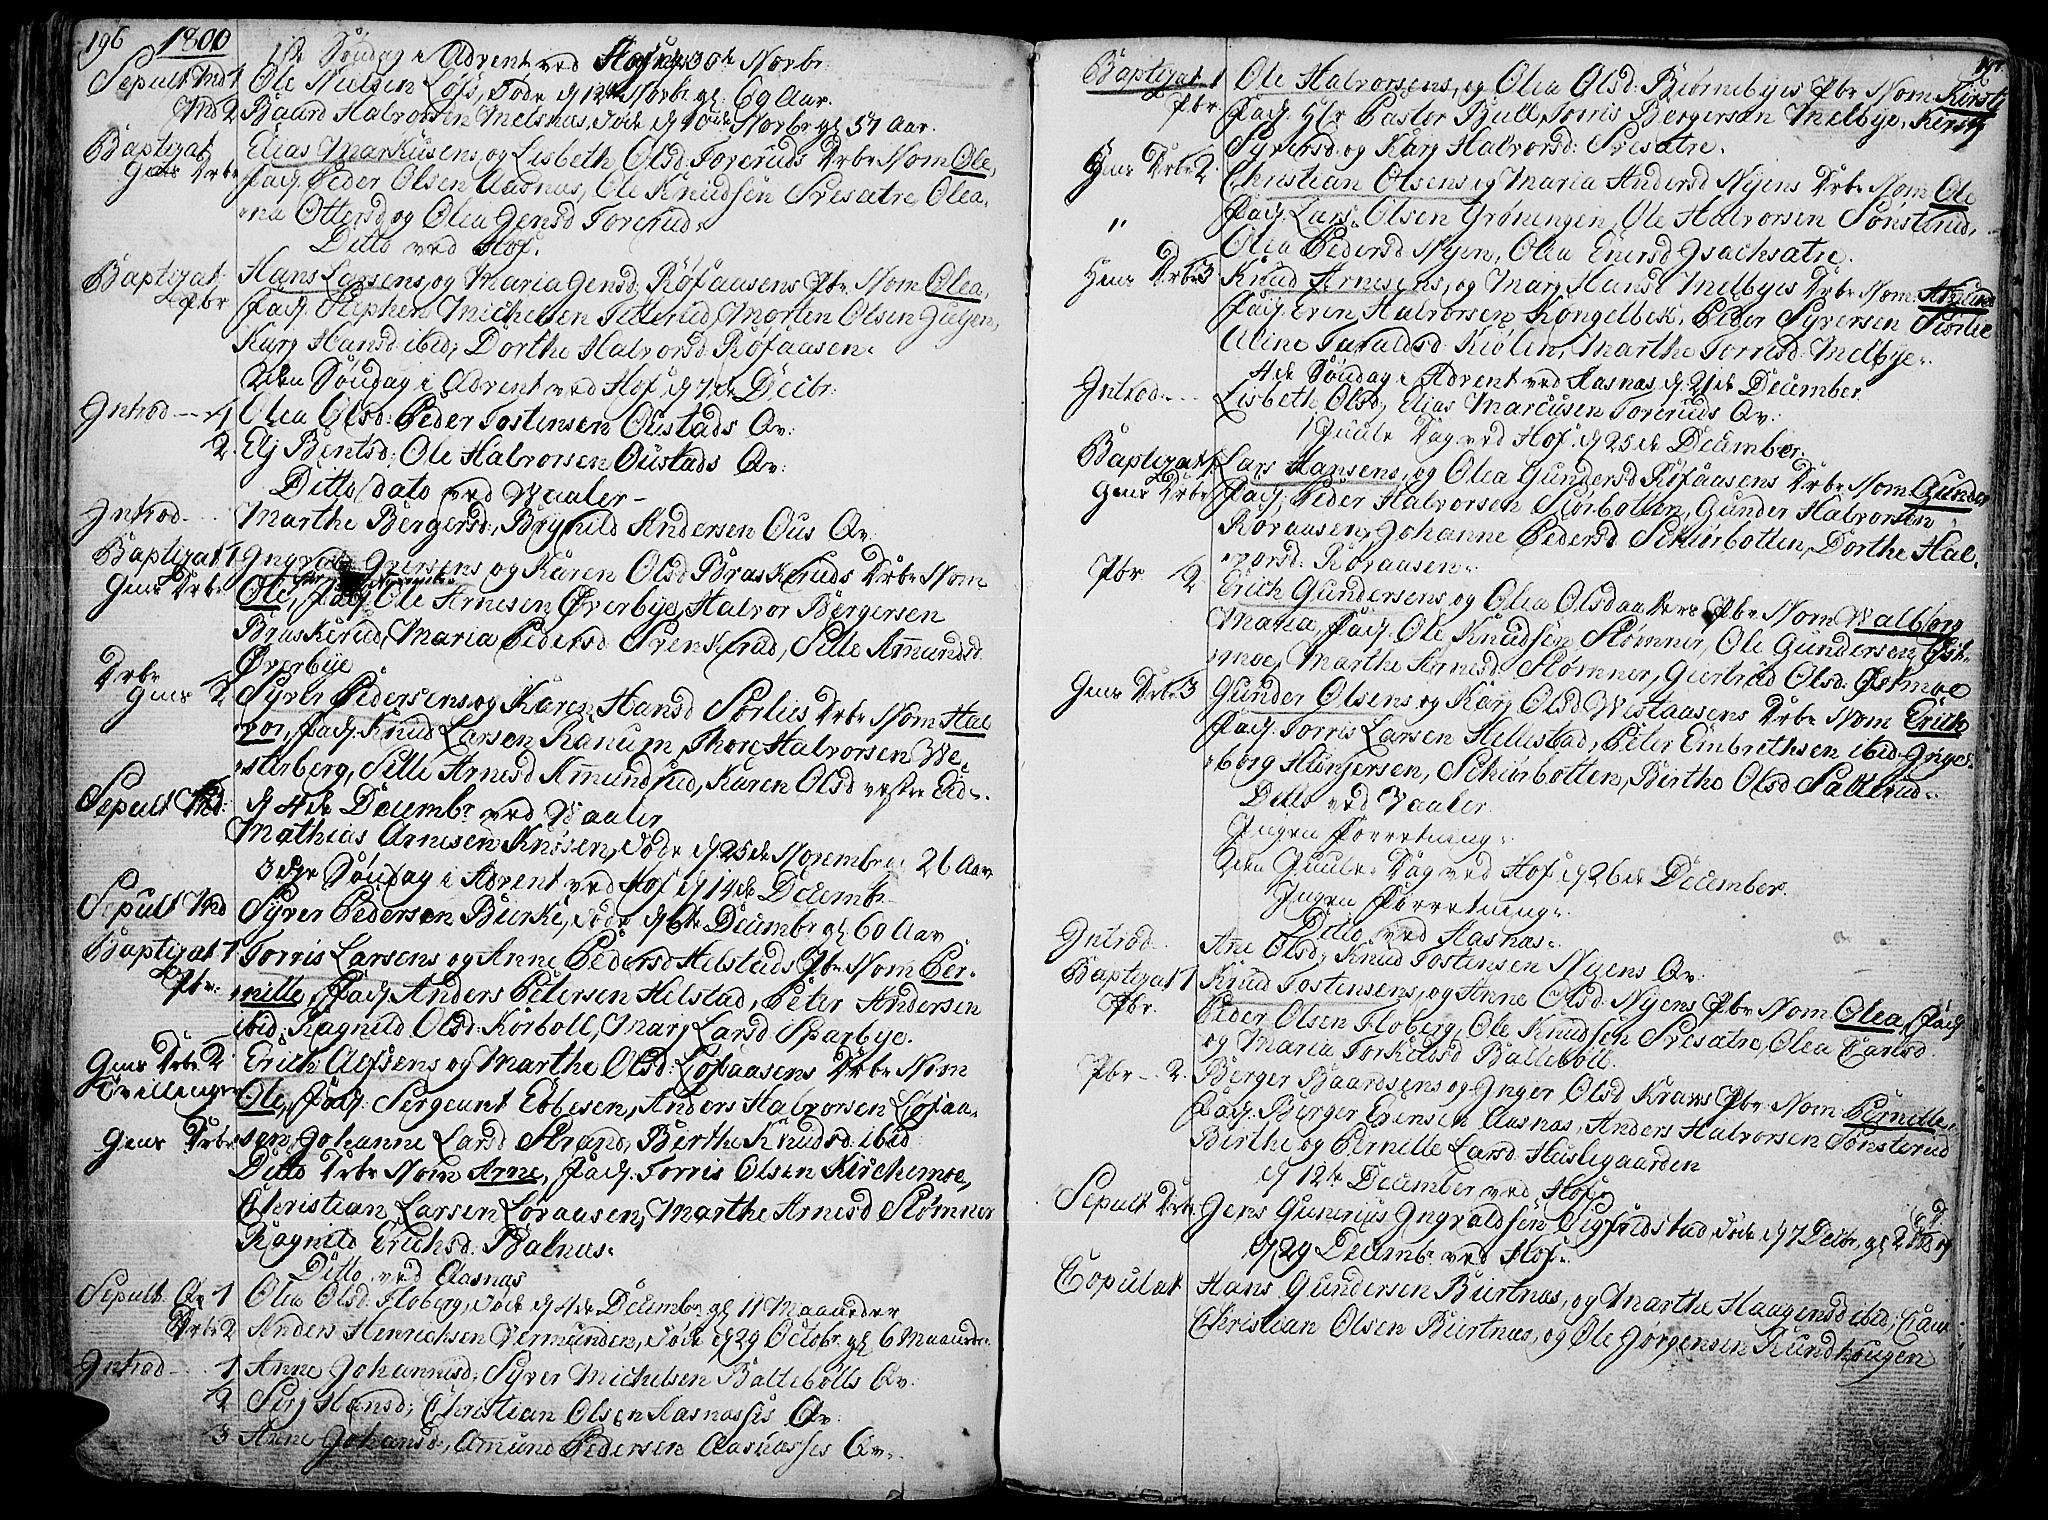 196 1800
1ste Söndag i Advent ved Hof d 30te Novbr:
Sepult Md 1 Ole Nielsen Löfs, Döde d 12te Novbr gl: 69 Aar.
Md 2 Baard Halvorsen Melsnæs, Döde d 10de Novbr gl 57 Aar.
Baptizat Elias Markusens, og Lisbeth Olsd: Toreruds Drbr Nom Ole,
Gens Drbr Fadd: Peder Olsen Aasnæs, Ole Knudsen Svesætre Olea-
na Ottersd og Olea Jensd Torerud.
Ditto ved Hof.
Baptizat Hans Larsens, og Maria Jensd: Röfaasens Pbr Nom Olea,
Pbr Fadd: Stephen Michelsen Tellerud, Morten Olsen
Kari Hansd ibid; Dorthe Halvorsd Röfaasen.
2den Söndag i Advent ved Hof d 7de Decbr:
Introd 1 Olea Olsd: Peder Tostensen Oustads Qv:
2. Elj Bentsd; Ole Halvorsen Oustads Qv:
Ditto dato ved Vaaler
Introd Marthe Bergersd; Brynild Andersen Ous Qv:
Baptizat 1 Ingvald Iversens og Karen Olsd Braskeruds Drbr Nom
Gens Drbr Ole, Fadd: Ole Arnesen Överbye, Halvor Bergersen
Braskerud, Maria Pedersd Svenkerud, Sille Amundsd.
Överbye
Drbr Gens 2 Syver Pedersens og Karen Hansd Sörlies Drbr Nom Hal
vor, Fadd: Knud Larsen Kanum, Thore Halvorsen We-
sterberg, Sille Arnesd Amundsrud, Karen Olsd vestre Eid.
Sepult Md: d 4de Decembr ved Vaaler
Mathias Arnesen Knösen, Döde d 25de Novembr 26 Aar
3die Söndag i Advent ved Hof d 14de Decembr
Sepult Md Syver Pedersen Burke, Döde d 6te Decembr gl 60 Aar
Baptizat 1 Torris Larsens og Anne Pedersd Helstads Pbr Nom Per-
Pbr: nille, Fadd Anders Petersen Helstad, Peter Andersen
ibid: Ragnild Olsd: Korboll, Mari Larsd Sparbye.
Gens Drbr 2 Erich Alfsens og Marthe Olsd: Löfaasens Drbr Nom
Tvillinger Ole, Fadd: Sergeant Ebbesen, Anders Halvorsen Löfaa-
Gens Drbr sen, Johanne Larsd Strand, Berthe Knudsd: ibid
Ditto Drbr Nom Arne, Fadd: Torris Olsen Kirchemoe,
Christian Larsen Lövaasen, Marthe Arnesd Stömner
Ragnild Erichsd. Balnæs.
Ditto ved Aasnæs
Sepult Qv 1 Olea Olsd: Floberg, Döde d 4de Decembr gl 11 Maaneder
Drbr 2 Anders Henrichsen Vermunden, Döde d 29 Octobr gl 6 Maaneder
Introd 1 Anne Johannesd; Syver Michelsen Baltebölls Qv:
2 Siri Hansd; Christian Olsen Aasnæsses Qv:
3 Anne Johansd, Amund Pedersen Aasnæsses Qv.
197.
Baptizat 1 Ole Halvorsens, og Olea Olsd: Biörnebyes Pbr Nom Kirsti
Pbr Fadd: Hr Pastor Bull, Torris Bergersen Melbye, Kirsti
Syversd: og Kari Halvorsd: Svesætre.
Gens Drbr 2. Christian Olsens, og Maria Andersd Nyens Drbr Nom Ole
" Fadd: Lars Olsen Gröningen, Ole Halvorsen Sönsterud,
Olea Pedersd Nyen, Olea Enersd Isachsætre.
Gens Drbr 3 Knud Arnesens, og Mari Hansd Melbyes Drbr Nom: Amund
Fadd: Even Halvorsen Kongelbek, Peder Syversen Störlie
Eline Taraldsd: Kiölen, Marthe Torresd: Melbye.
4de Söndag i Advent ved Aasnæs d 21de December
Introd. Lisbeth Olsd; Elias Marcusen Toreruds Qv:
1 Juule Dag ved Hof d 25de December
Baptizat 1 Lars Hansens, og Olea Gundersd Röfaasens Drbr Nom Gunder
Gens Drbr Fadd; Peder Halvorsen Skörbotten, Gunder Halvorsen
Rövaasen, Johanne Pedersd Schiörbotten, Dorthe Hal-
vorsd: Rövaasen.
Pbr 2. Erich Gundersens, og Olea Olsdaaters Pbr Nom Walborg
Maria, Fadd: Ole Knudsen Stömner, Ole Gundersen Öst-
moe, Marthe Arnesd: Stömner, Giertrud Olsd: Östmoe
Gens Drbr 3 Gunder Olsens, og Kari Olsd Westaasens Drbr Nom Erich
Fadd: Torris Larsen Hellestad, Peter Embrethsen ibid: Inge-
borg Schiörbotten, Birthe Olsd Satterud.
Ditto ved Vaaler
Ingen Forretning.
2den Juule Dag ved Hof d 26de December.
Ingen Forretning.
Ditto ved Aasnæs.
Introd. Ane Olsd; Knud Tostensen Nyens Qv:
Baptizat 1 Knud Tostensens, og Anne Olsd: Nyens Pbr Nom Olea, Fadd
Pbr. Peder Olsen Floberg, Ole Knudsen Svesætre, Olea Carlsd.
og Maria Torkildsd Balteböll.
Pbr 2. Berger Baardsens og Inger Olsd Kraxs Pbr Nom Pernille.
Fadd: Berger Evensen Aasnæs, Anders Halvorsen Sönsterud
Birthe og Pernille Larsd: Huslegaarden
d 12te December ved Hof.
Sepult Drbr Jens Gunerius Ingvaldsen Sigfridstad, Döde d 7 Decbr, gl 2
d 29 Decembr ved Hof.
Copulat Hans Gundersen Burtnæs, og Marthe Haagensd ibid; Caut
Christian Olsen Burtnæs, og Ole Jörgensen Rundhougen